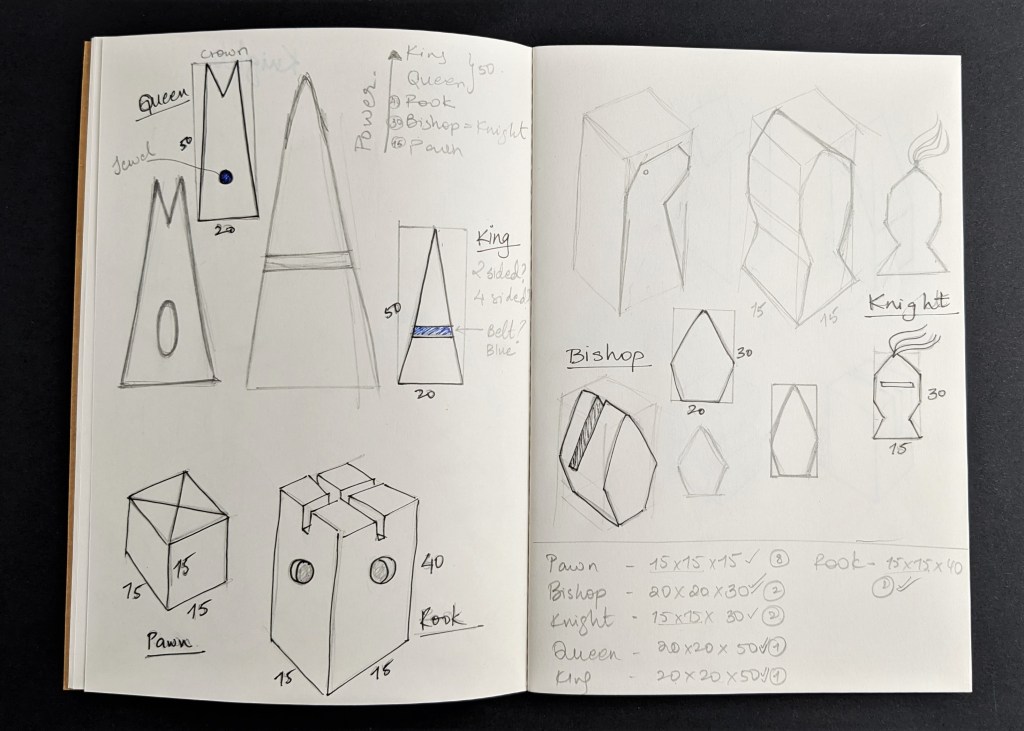 crown
Queen
50
Jewel
20
Power.
King
Queen } 50.
Rook
30 Bishop = Knight
15 Pawn
King
2 sided?
4 sided?
50
Belt?
Blue?
20
15
15
15
Pawn
40
Rook
15
15
15
15
Knight
30
15
Bishop
30
20
Pawn - 15x15x15 ✓ 8
Bishop - 20x20x30 ✓ 2
Knight - 15x15x30 ✓ 2
Queen - 20x20x50 ✓ 1
King - 20x20x50 ✓ 1
Rook - 15x15x40
2 ✓